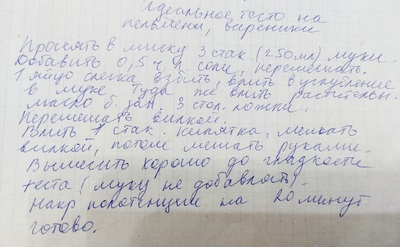 Идеальное тесто на
пельмени, вареники
Просеять в миску 3 стак (250мл) муки.
Добавить 0,5 ч. л. соли, перемешать.
1 яйцо слегка взбить, влить в углубление
в муке. Туда же влить растительн.
масло б. зап. 3 стол. ложки.
Перемешать вилкой.
Влить 1 стак. кипятка, мешать
вилкой, потом мешать руками.
Вымесить хорошо до гладкости
теста (муку не добавлять).
Накр полотенцем на 20 минут
готово.